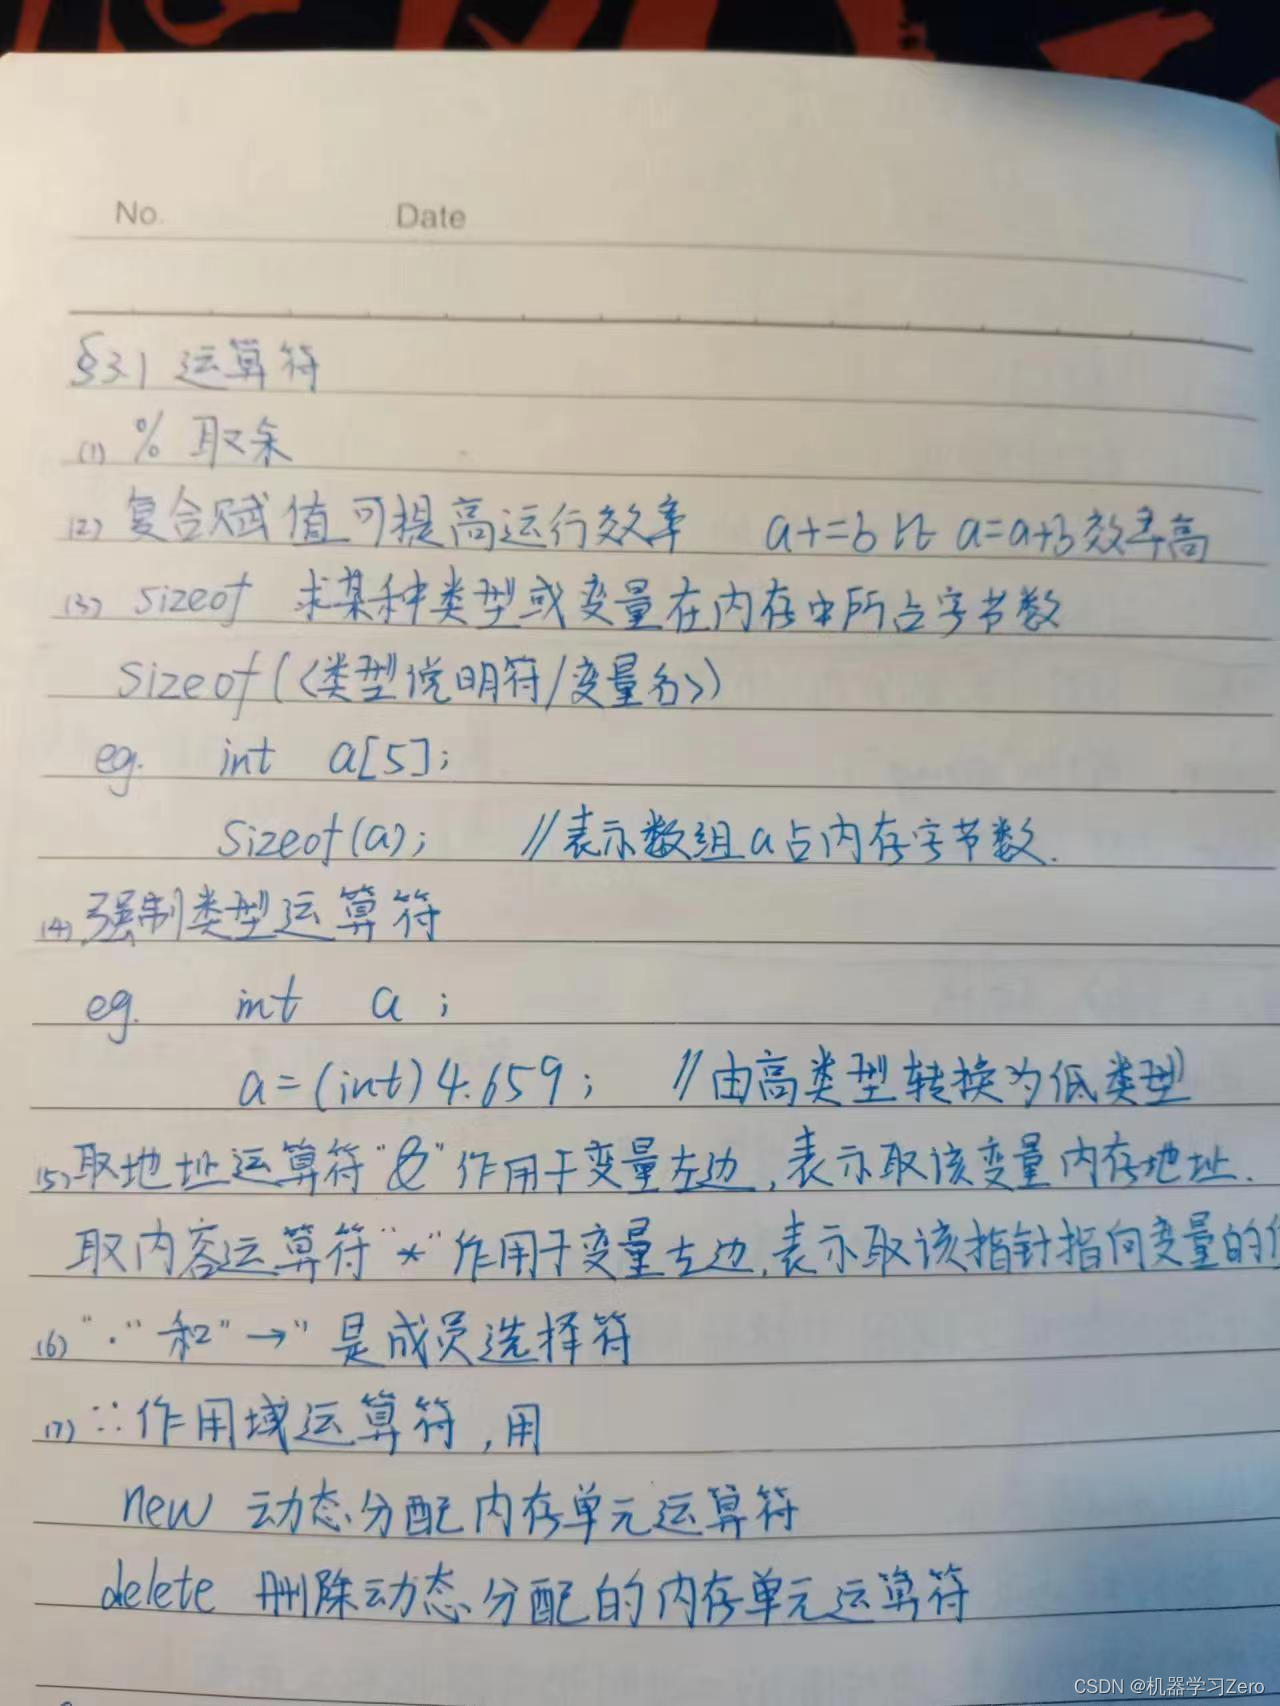 No.
Date
§3.1 运算符
(1) % 取余
(2) 复合赋值可提高运行效率 a+=b 比 a=a+b效率高
(3) sizeof 求某种类型或变量在内存中所占字节数
sizeof(<类型说明符/变量名>)
eg. int a[5];
sizeof(a); //表示数组a占内存字节数.
(4) 强制类型运算符
eg. int a ;
a=(int)4.659; //由高类型转换为低类型
(5) 取地址运算符"&"作用于变量左边,表示取该变量内存地址.
取内容运算符"*"作用于变量左边,表示取该指针指向变量的
(6) "." 和"→"是成员选择符
(7) ::作用域运算符,用
new 动态分配内存单元运算符
delete 删除动态分配的内存单元运算符
CSDN @机器学习Zero